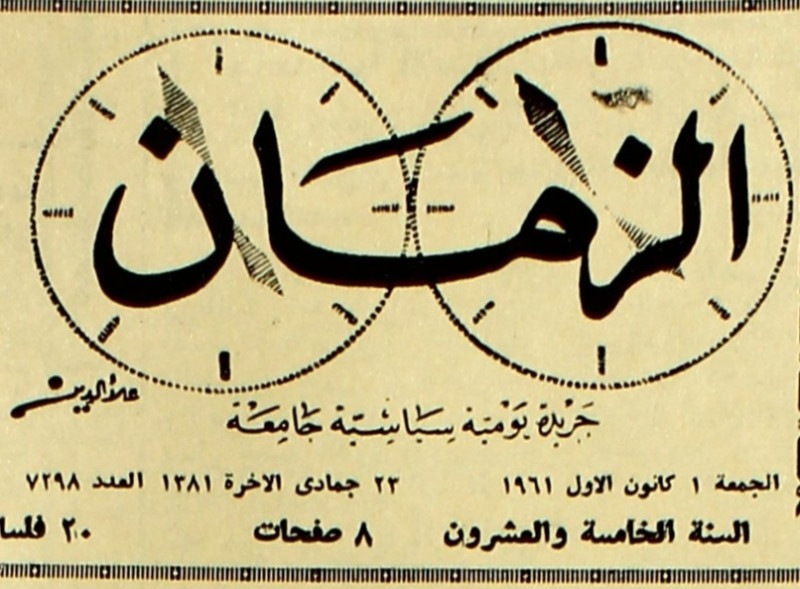 الزمان
علاءالدين
جريدة يومية سياسية جامعة
الجمعة ١ كانون الاول ١٩٦١ ٢٣ جمادى الاخرة ١٣٨١ العدد ٧٢٩٨
السنة الخامسة والعشرون ٨ صفحات ٢٠ فلسا